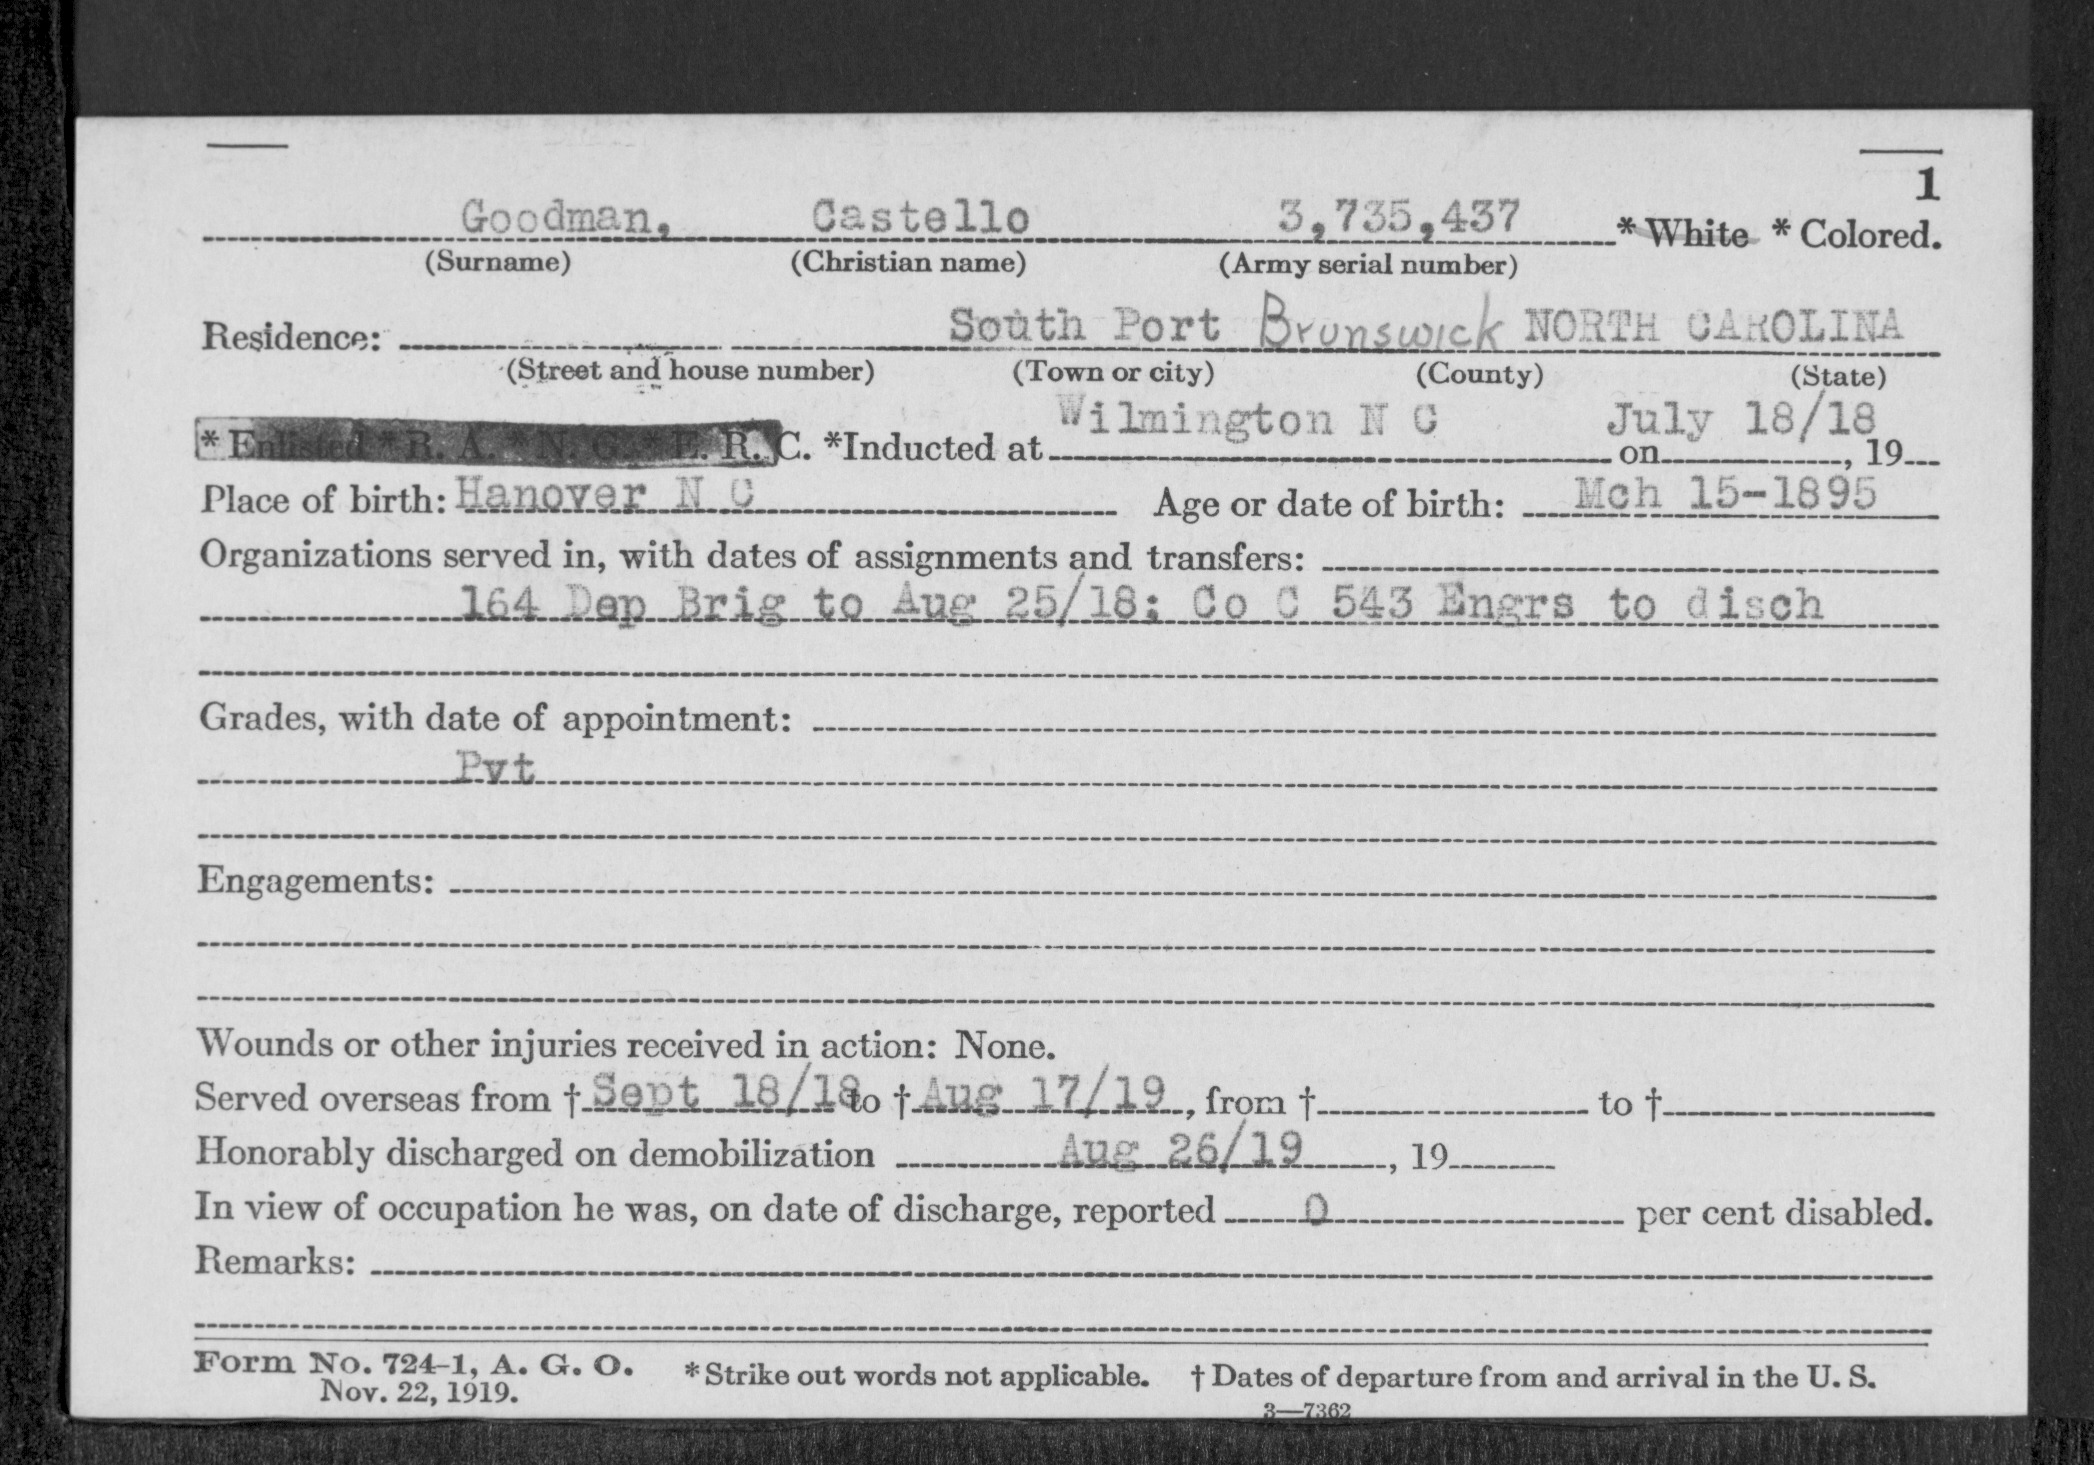 1
Goodman, Castello 3,735,437 * White * Colored.
(Surname) (Christian name) (Army serial number)
Residence: South Port Brunswick NORTH CAROLINA
(Street and house number) (Town or city) (County) (State)
* Enlisted * R. A. * N. G. * E. R. C. *Inducted at Wilmington N C on July 18/18, 19
Place of birth: Hanover N C Age or date of birth: Mch 15-1895
Organizations served in, with dates of assignments and transfers:
164 Dep Brig to Aug 25/18; Co C 543 Engrs to disch
Grades, with date of appointment:
Pvt
Engagements:
Wounds or other injuries received in action: None.
Served overseas from † Sept 18/18 to † Aug 17/19, from † to †
Honorably discharged on demobilization Aug 26/19, 19
In view of occupation he was, on date of discharge, reported 0 per cent disabled.
Remarks:
Form No. 724-1, A. G. O. * Strike out words not applicable. † Dates of departure from and arrival in the U. S.
Nov. 22, 1919.
3—7362